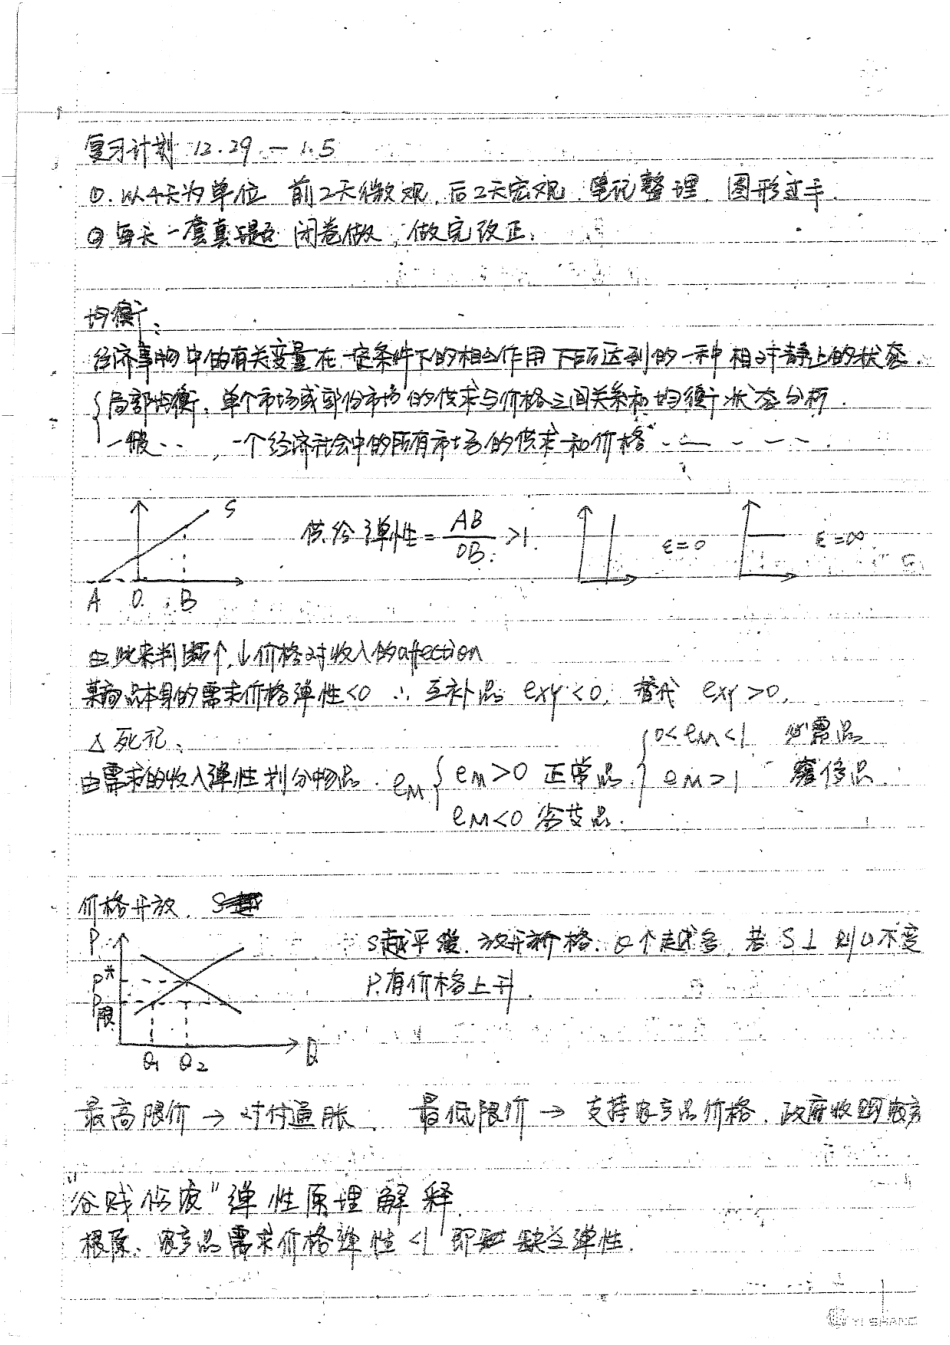 复习计划 12.29 — 1.5
①. 以4天为单位 前2天微观, 后2天宏观. 笔记整理. 图形过手.
② 每天一套真题 闭卷做, 做完改正.
均衡:
经济事物中的有关变量在一定条件下的相互作用下所达到的一种相对静止的状态.
局部均衡, 单个市场或部份市场的供求与价格之间关系和均衡状态分析.
一般.., 一个经济社会中的所有市场的供求和价格
S
供给弹性=AB/OB>1.
ε=0
ε=∞
A O B
由此来判断个,↓价格对收入的affection
某商品本身的需求价格弹性<0 ∴ 互补品 exy<0, 替代 exy>0,
△ 死记:
由需求的收入弹性划分物品. eM { eM>0 正常品 { 0<eM<1 必需品
eM>1 奢侈品
eM<0 劣芰品.
价格开放.
P
P*
P限
Q1 Q2
Q
S越平缓. 放开价格. Q个越多, 若S⊥ 则Q不变
只有价格上升.
最高限价 → 对付通胀, 最低限价 → 支持农产品价格, 政府收购
"谷贱伤农"弹性原理解释
根源: 农产品需求价格弹性<1 即缺乏弹性.
YI SHANG